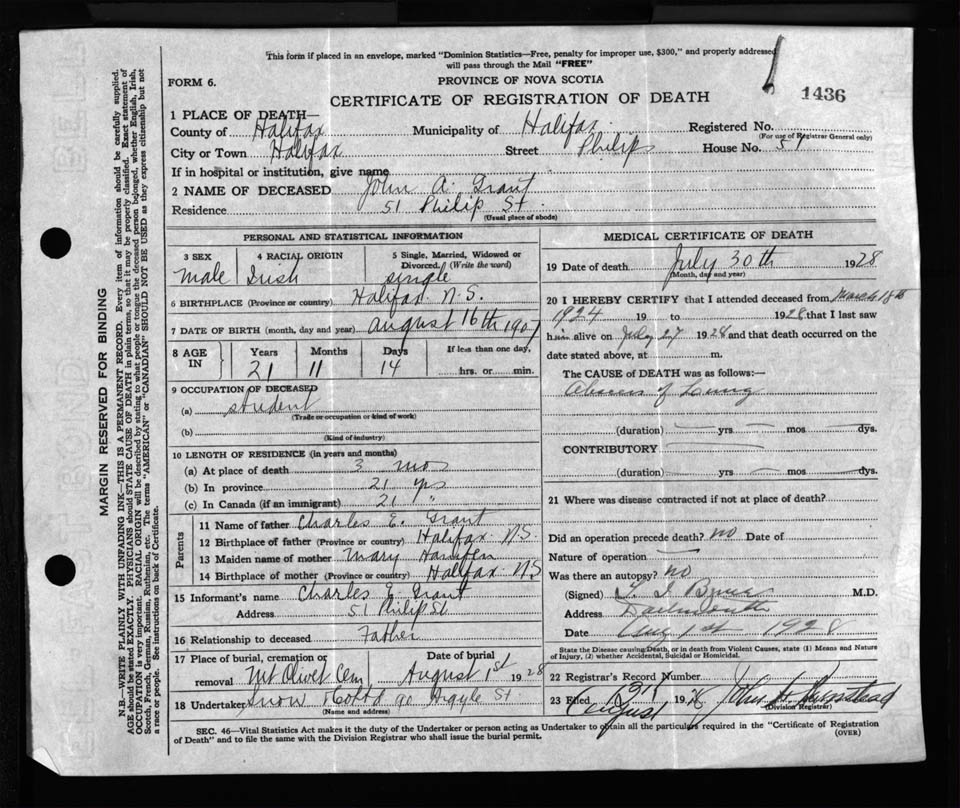 This form if placed in an envelope, marked "Dominion Statistics—Free, penalty for improper use, $300," and properly addressed
will pass through the Mail "FREE"
FORM 6.
PROVINCE OF NOVA SCOTIA
CERTIFICATE OF REGISTRATION OF DEATH
1436
1 PLACE OF DEATH—
County of Halifax Municipality of Halifax Registered No.
(For use of Registrar General only)
City or Town Halifax Street Philip House No. 51
If in hospital or institution, give name
2 NAME OF DECEASED John A. Grant
Residence 51 Philip St
(Usual place of abode)
PERSONAL AND STATISTICAL INFORMATION
3 SEX
male
4 RACIAL ORIGIN
Irish
5 Single, Married, Widowed or
Divorced. (Write the word)
single
6 BIRTHPLACE (Province or country) Halifax N.S.
7 DATE OF BIRTH (month, day and year) august 16th 1907
8 AGE IN
Years
21
Months
11
Days
14
If less than one day,
hrs. or min.
9 OCCUPATION OF DECEASED
(a) student
(Trade or occupation or kind of work)
(b)
(Kind of industry)
10 LENGTH OF RESIDENCE (in years and months)
(a) At place of death 3 mos
(b) In province 21 yrs
(c) In Canada (if an immigrant) 21 "
Parents
11 Name of father Charles E. Grant
12 Birthplace of father (Province or country) Halifax N.S.
13 Maiden name of mother Mary
14 Birthplace of mother (Province or country) Halifax N.S
15 Informant's name Charles E. Grant
Address 51 Philip St
16 Relationship to deceased Father
17 Place of burial, cremation or
removal Mt Olivet Cem
Date of burial
August 1st 1928
18 Undertaker, Snow & Co Ltd 90 Argyle St
(Name and address)
MEDICAL CERTIFICATE OF DEATH
19 Date of death July 30th 1928
(Month, day and year)
20 I HEREBY CERTIFY that I attended deceased from March 18th
1924 19 to 1928 that I last saw
him alive on July 27 1928 and that death occurred on the
date stated above, at m.
The CAUSE of DEATH was as follows:—
Abscess of Lung
(duration) yrs mos dys.
CONTRIBUTORY
(duration) yrs mos dys.
21 Where was disease contracted if not at place of death?
Did an operation precede death? no Date of
Nature of operation
Was there an autopsy? no
(Signed) M.D.
Address Dartmouth
Date Aug 1st 1928
State the Disease causing Death, or in death from Violent Causes, state (1) Means and Nature
of Injury, (2) whether Accidental, Suicidal or Homicidal.
22 Registrar's Record Number
23 Filed August 1st 1928 John H.
(Division Registrar)
SEC. 46—Vital Statistics Act makes it the duty of the Undertaker or person acting as Undertaker to obtain all the particulars required in the "Certificate of Registration
of Death" and to file the same with the Division Registrar who shall issue the burial permit.
(OVER)
MARGIN RESERVED FOR BINDING
N.B.—WRITE PLAINLY WITH UNFADING INK—THIS IS A PERMANENT RECORD. Every item of information should be carefully supplied.
AGE should be stated EXACTLY. PHYSICIANS should STATE CAUSE OF DEATH in plain terms, so that it may be properly classified. Exact statement of
OCCUPATION is very important. RACIAL ORIGIN will be described by stating to what people or tongue the deceased person belonged, whether English, Irish,
Scotch, French, German, Russian, Ruthenian, etc. The terms "AMERICAN" or "CANADIAN" SHOULD NOT BE USED as they express citizenship but not
a race or people. See instructions on back of Certificate.